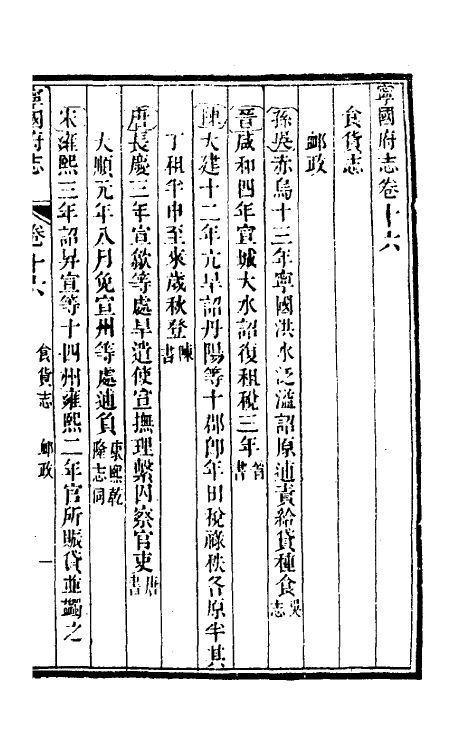 寧國府志卷十六
食貨志
䘏政
孫吳赤烏十三年寧國洪水泛溢詔原逋責給貸種食吳志
晉咸和四年宣城大水詔復租稅三年晉書
陳大建十二年亢旱詔丹陽等十郡卽年田稅祿秩各原半其
丁租半申至來歲秋登陳書
唐長慶三年宣歙等處旱遣使宣撫理繫囚察官吏唐書
大順元年八月免宣州等處逋負康熙乾隆志同
宋雍熙三年詔昇宣等十四州雍熙二年官所賑貸並蠲之
寧國府志
卷十六
食貨志
䘏政
一